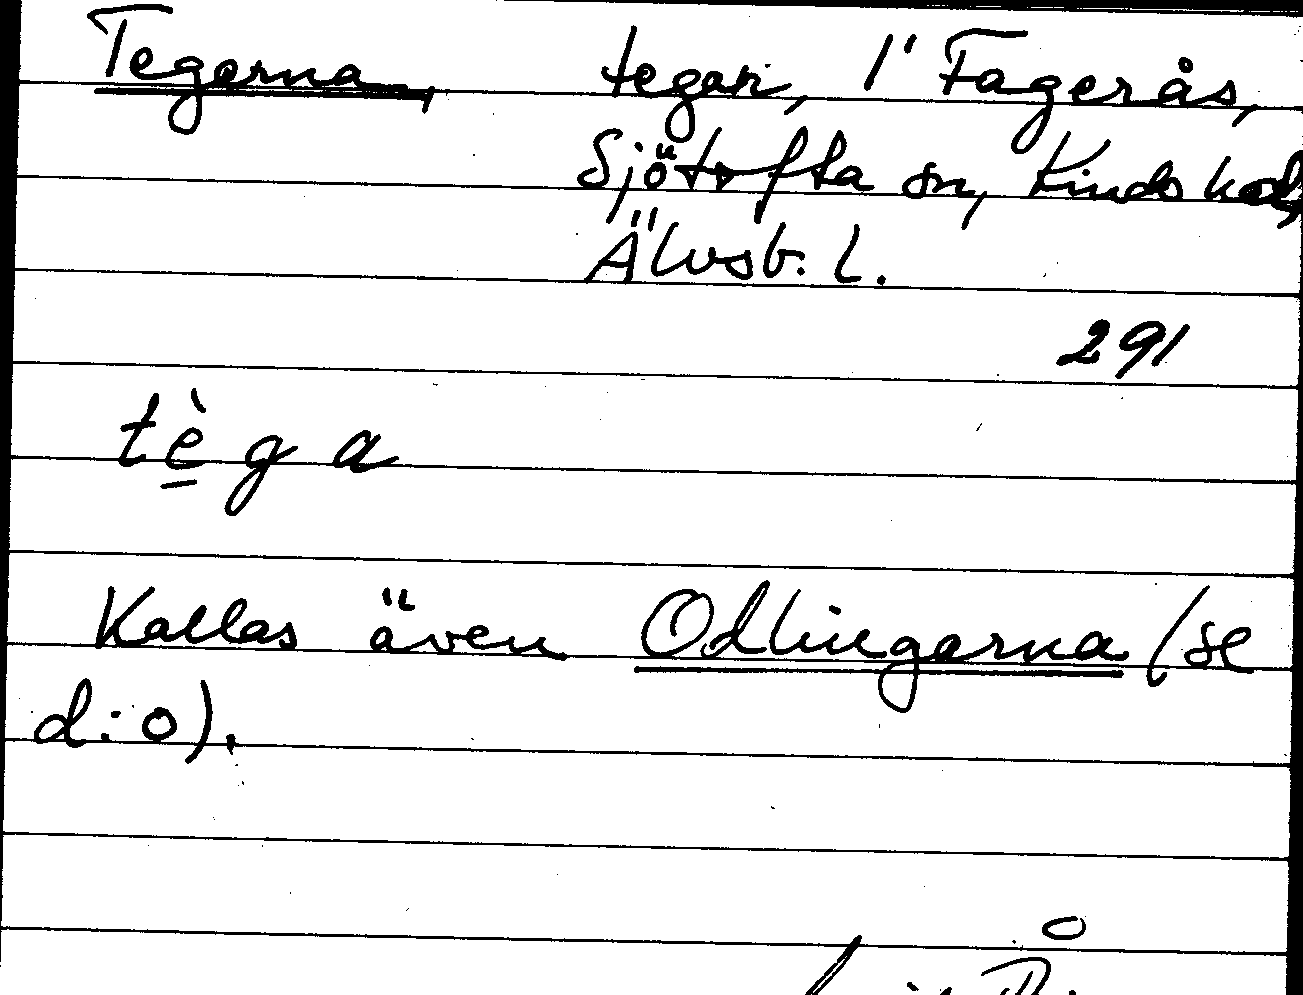 Tegarna, tegar, 1' Fagerås,
Sjötofta sn, Kinds hd,
Älvsb. l.
291
tè̲ga
Kallas även Odlingarna (se
d:o).